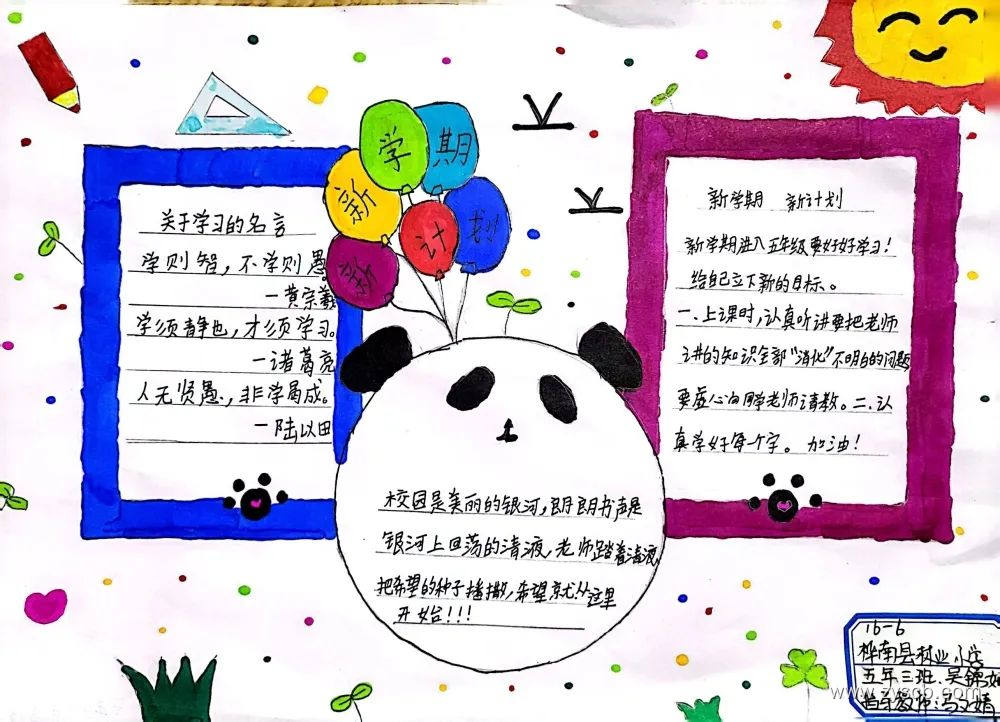 新学期
新计划
关于学习的名言
学则智，不学则愚
一黄宗羲
学须静也，才须学习。
一诸葛亮
人无贤愚，非学曷成。
一陆以田
新学期 新计划
新学期进入五年级要好好学习！
给自己立下新的目标。
一．上课时，认真听讲要把老师
讲的知识全部“消化”不明白的问题
要虚心向同学老师请教。二．认
真学好每一个字。加油！
校园是美丽的银河，朗朗书声是
银河上回荡的清波，老师踏着清波
把希望的种子播撒，希望就从这里
开始！！！
16-6
桦南县林业小学
五年三班．吴锦
指导教师：冯文婧